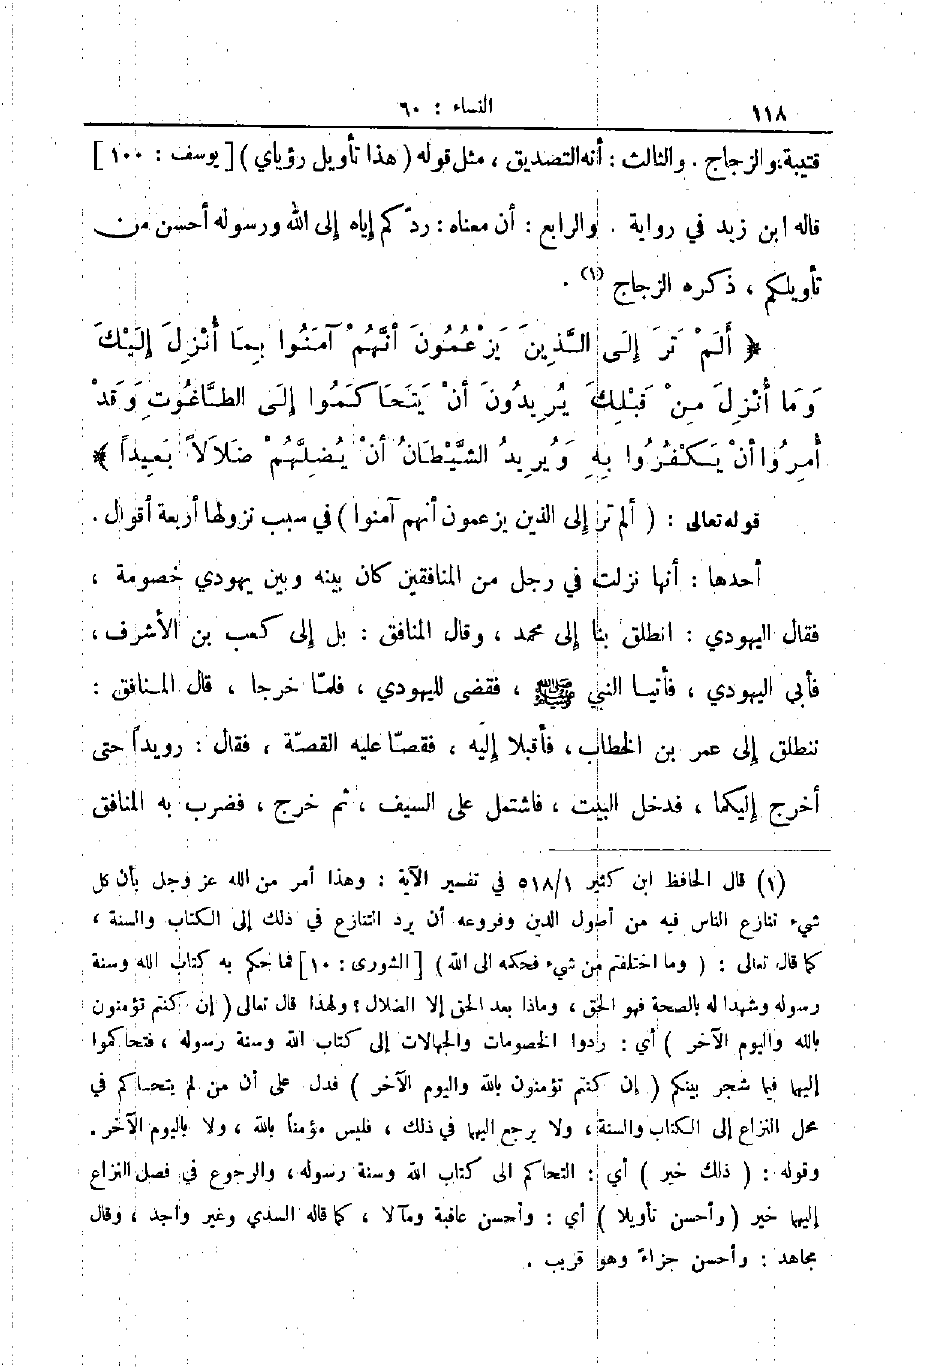 ١١٨ النساء : ٦٠
قتيبة والزجاج . والثالث : أنه التصديق ، مثل قوله ( هذا تأويل رؤياي ) [ يوسف : ١٠٠ ]
قاله ابن زيد في رواية . والرابع : أن معناه : ردّكم إياه إلى الله ورسوله أحسن من
تأويلكم ، ذكره الزجاج (١) .
﴿ أَلَمْ تَرَ إِلَى الَّذِينَ يَزْعُمُونَ أَنَّهُمْ آمَنُوا بِمَا أُنْزِلَ إِلَيْكَ
وَمَا أُنْزِلَ مِنْ قَبْلِكَ يُرِيدُونَ أَنْ يَتَحَاكَمُوا إِلَى الطَّاغُوتِ وَقَدْ
أُمِرُوا أَنْ يَكْفُرُوا بِهِ وَيُرِيدُ الشَّيْطَانُ أَنْ يُضِلَّهُمْ ضَلَالاً بَعِيداً ﴾
قوله تعالى : ( ألم تر إلى الذين يزعمون أنهم آمنوا ) في سبب نزولها أربعة أقوال .
أحدها : أنها نزلت في رجل من المنافقين كان بينه وبين يهودي خصومة ،
فقال اليهودي : انطلق بنا إلى محمد ، وقال المنافق : بل إلى كعب بن الأشرف ،
فأبى اليهودي ، فأتيا النبي ﷺ ، فقضى لليهودي ، فلمّا خرجا ، قال المنافق :
ننطلق إلى عمر بن الخطاب ، فأقبلا إليه ، فقصّا عليه القصّة ، فقال : رويداً حتى
أخرج إليكما ، فدخل البيت ، فاشتمل على السيف ، ثم خرج ، فضرب به المنافق
(١) قال الحافظ ابن كثير ٥١٨/١ في تفسير الآية : وهذا أمر من الله عز وجل بأن كل
شيء تنازع الناس فيه من أصول الدين وفروعه أن يرد التنازع في ذلك إلى الكتاب والسنة ،
كما قال تعالى : ( وما اختلفتم من شيء فحكمه الى الله ) [ الشورى : ١٠ ] فما حكم به كتاب الله وسنة
رسوله وشهدا له بالصحة فهو الحق ، وماذا بعد الحق إلا الضلال ؟ ولهذا قال تعالى ( إن كنتم تؤمنون
بالله واليوم الآخر ) أي : ردوا الخصومات والجهالات إلى كتاب الله وسنة رسوله ، فتحاكموا
إليها فيما شجر بينكم ( إن كنتم تؤمنون بالله واليوم الآخر ) فدل على أن من لم يتحاكم في
محل النزاع إلى الكتاب والسنة ، ولا يرجع اليها في ذلك ، فليس مؤمناً بالله ، ولا باليوم الآخر .
وقوله : ( ذلك خير ) أي : التحاكم الى كتاب الله وسنة رسوله ، والرجوع في فصل النزاع
إليها خير ( وأحسن تأويلا ) أي : وأحسن عاقبة ومآلا ، كما قاله السدي وغير واحد ، وقال
مجاهد : وأحسن جزاءً وهو قريب .